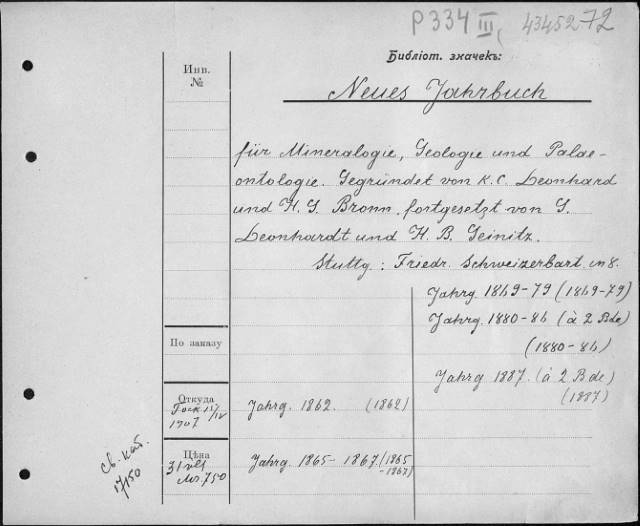 P 334 III, 43452-72
Библiот. значекъ:
Инв.
№
Neues Jahrbuch
für Mineralogie, Geologie und Palae-
ontologie. Gegründet von K. C. Leonhard
und H. G. Bronn, fortgesetzt von G.
Leonhardt und H. B. Geinitz.
Stuttg: Friedr. Schweizerbart. in 8.
Jahrg. 1869-79 (1869-79)
Jahrg. 1880-86 (à 2 Bde)
(1880-86)
Jahrg 1887. (à 2 Bde)
(1887)
По заказу
Откуда
1907
Jahrg. 1862. (1862)
Цѣна
Mr. 750
Jahrg. 1865-1867. (1865
-1867)
св. кат.
17150